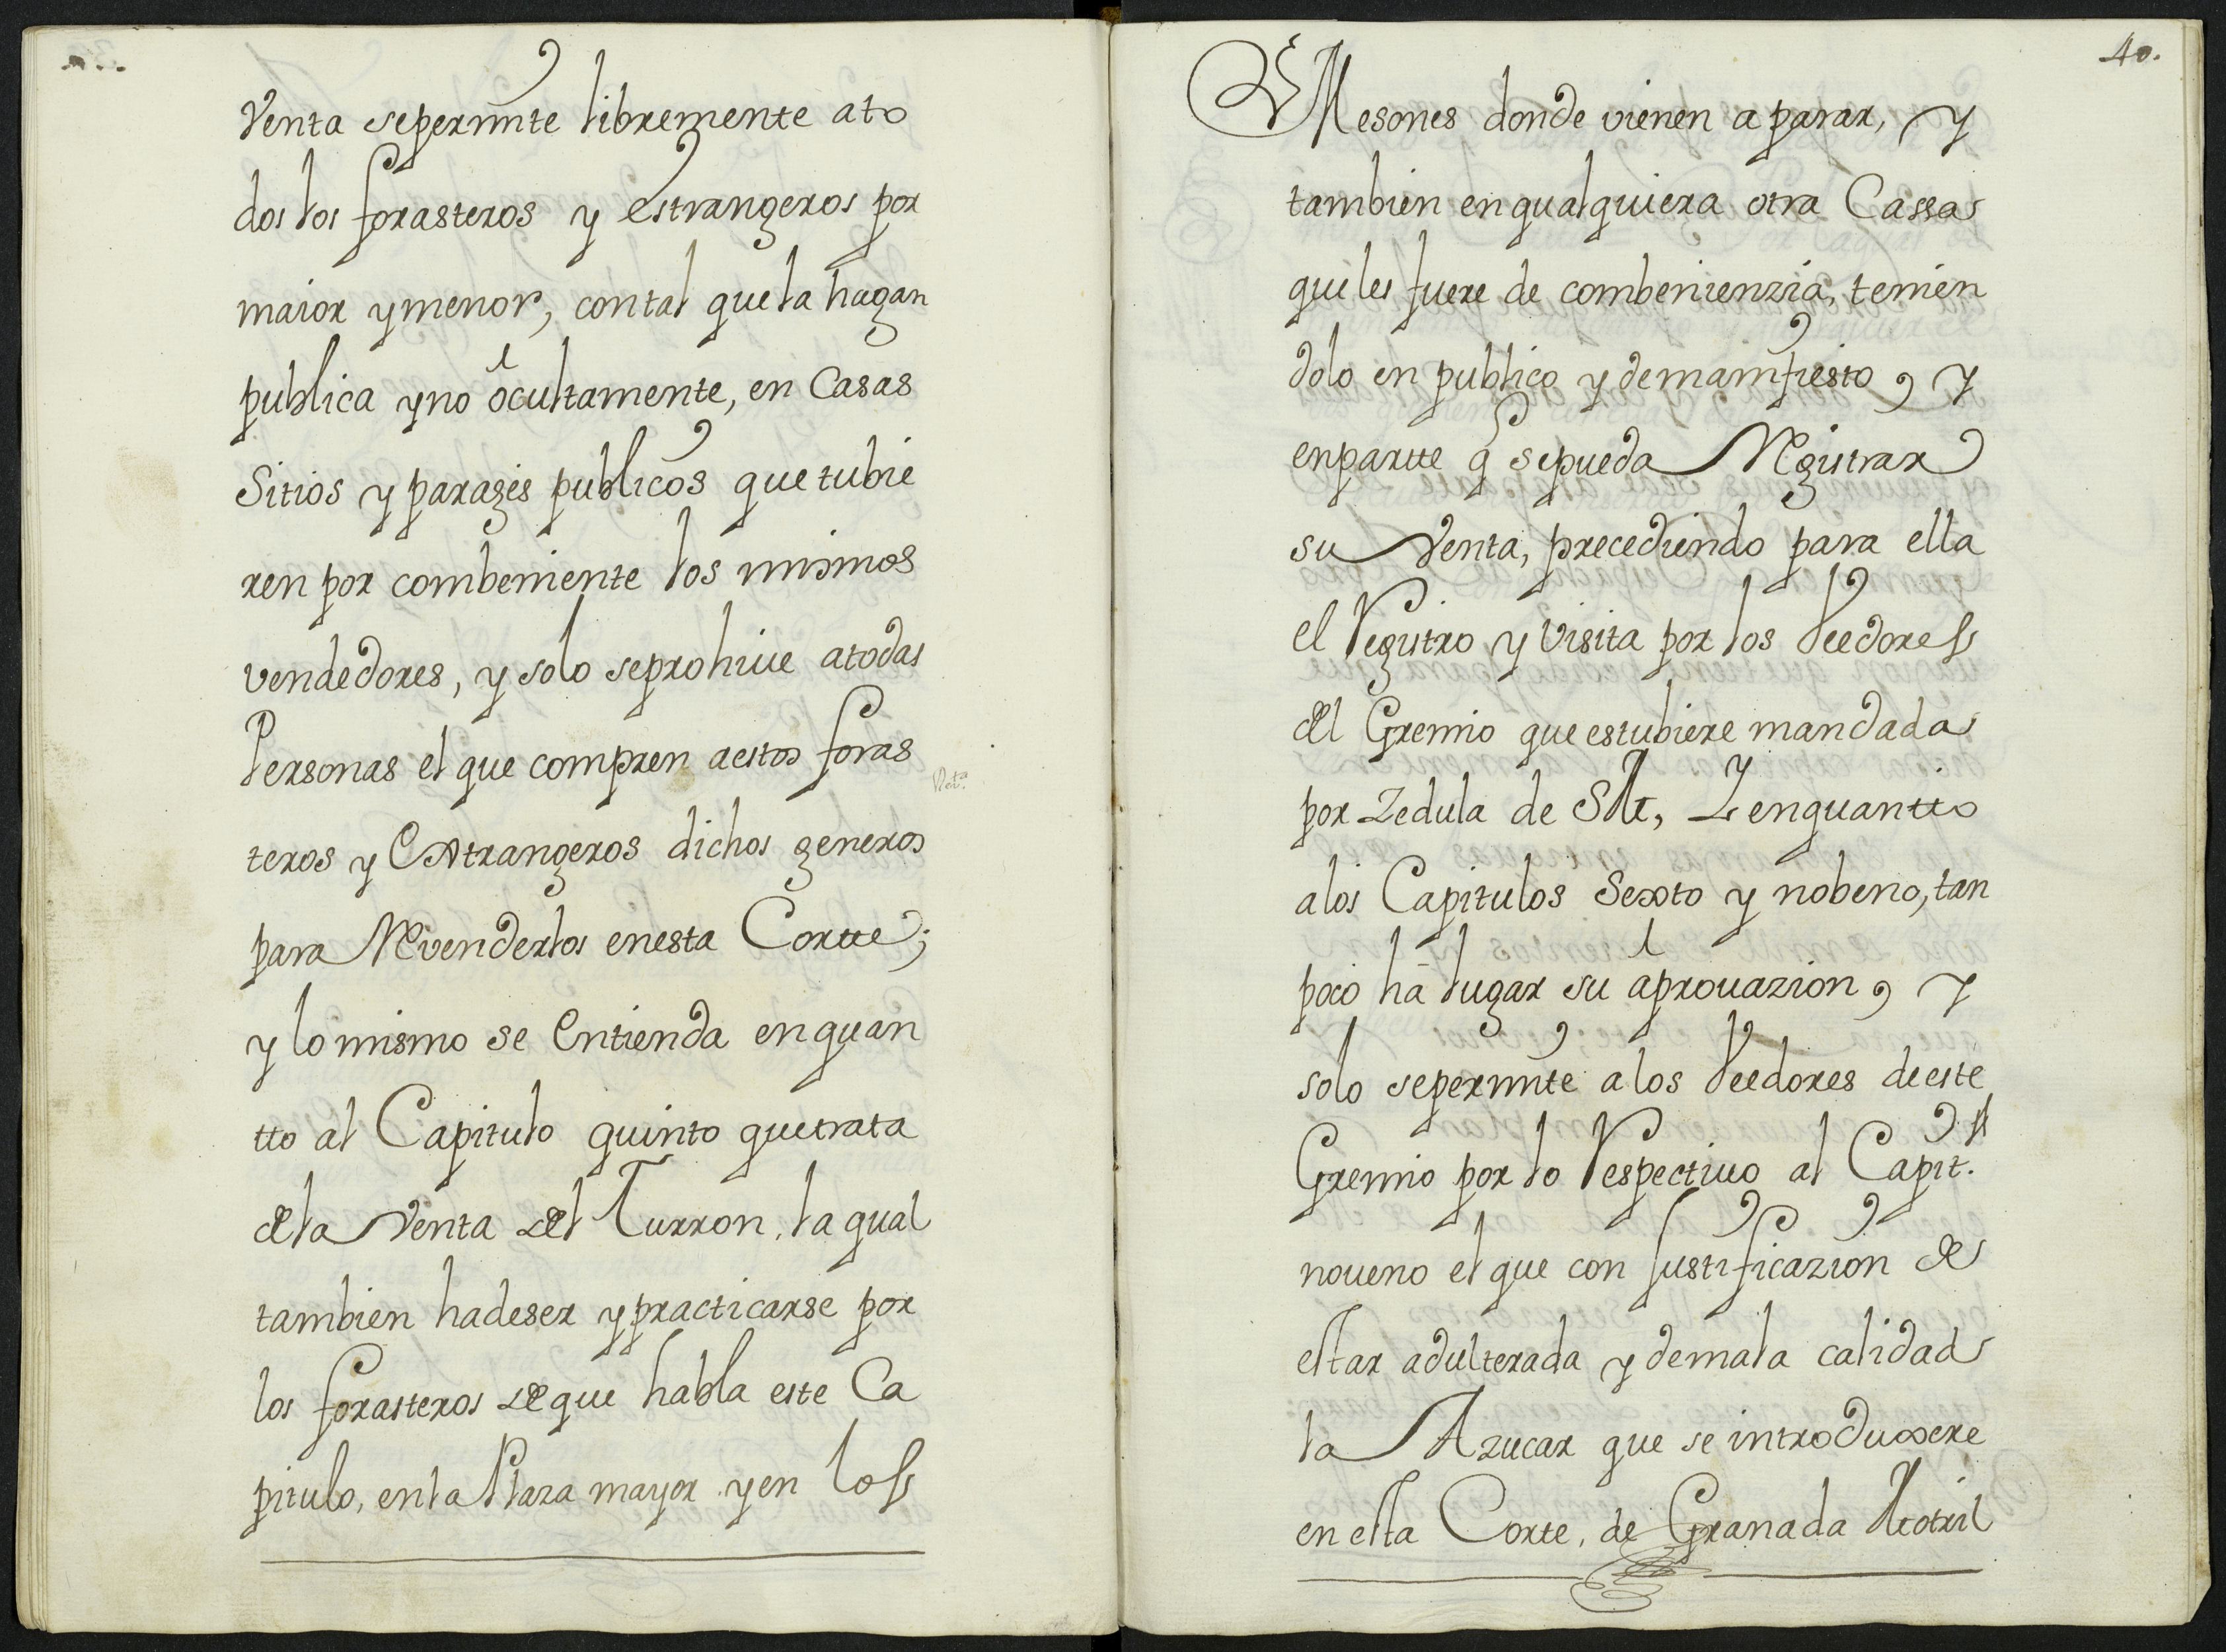 Venta sepermite libremente ato
dos los forasteros y estrangeros por
maior y menor, contal que la hagan
publica yno ocultamente, en Casas
Sitios y parages publicos que tubie
ren por combeniente los mismos
vendedores, y solo seprohive atodas
Personas el que compren aestos foras
teros y Estrangeros dichos generos
para Revenderlos enesta Cortte;
y lo mismo se Entienda en quan
tto al Capitulo quinto que trata
de la Venta del Turron, la qual
tambien hadeser y practicarse por
los forasteros de que habla este Ca
pitulo, en la Plaza mayor y en los
Not.ª
40.
Mesones donde vienen a parar, y
tambien en qualquiera otra Cassa
que les fuere de combenienzia, tenien
dolo en publico y demanifiesto, y
enpartte q̃ sepueda Registrar
su Venta, precediendo para ella
el Registro y Visita por los Veedores
del Gremio que estubiere mandada
por Zedula de S.M., Y enquantto
alos Capitulos Sexto y nobeno, tan
poco ha lugar su aprovazion, y
solo sepermite a los Veedores de este
Gremio por lo Respectivo al Capit.º
noveno el que con Justificazion de
estar adulterada y demala calidad
la Azucar que se introduxere
en esta Corte, de Granada Motril